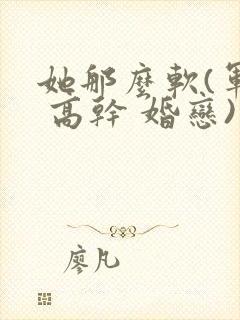 她那麼軟(軍
高幹 婚戀)
廖凡